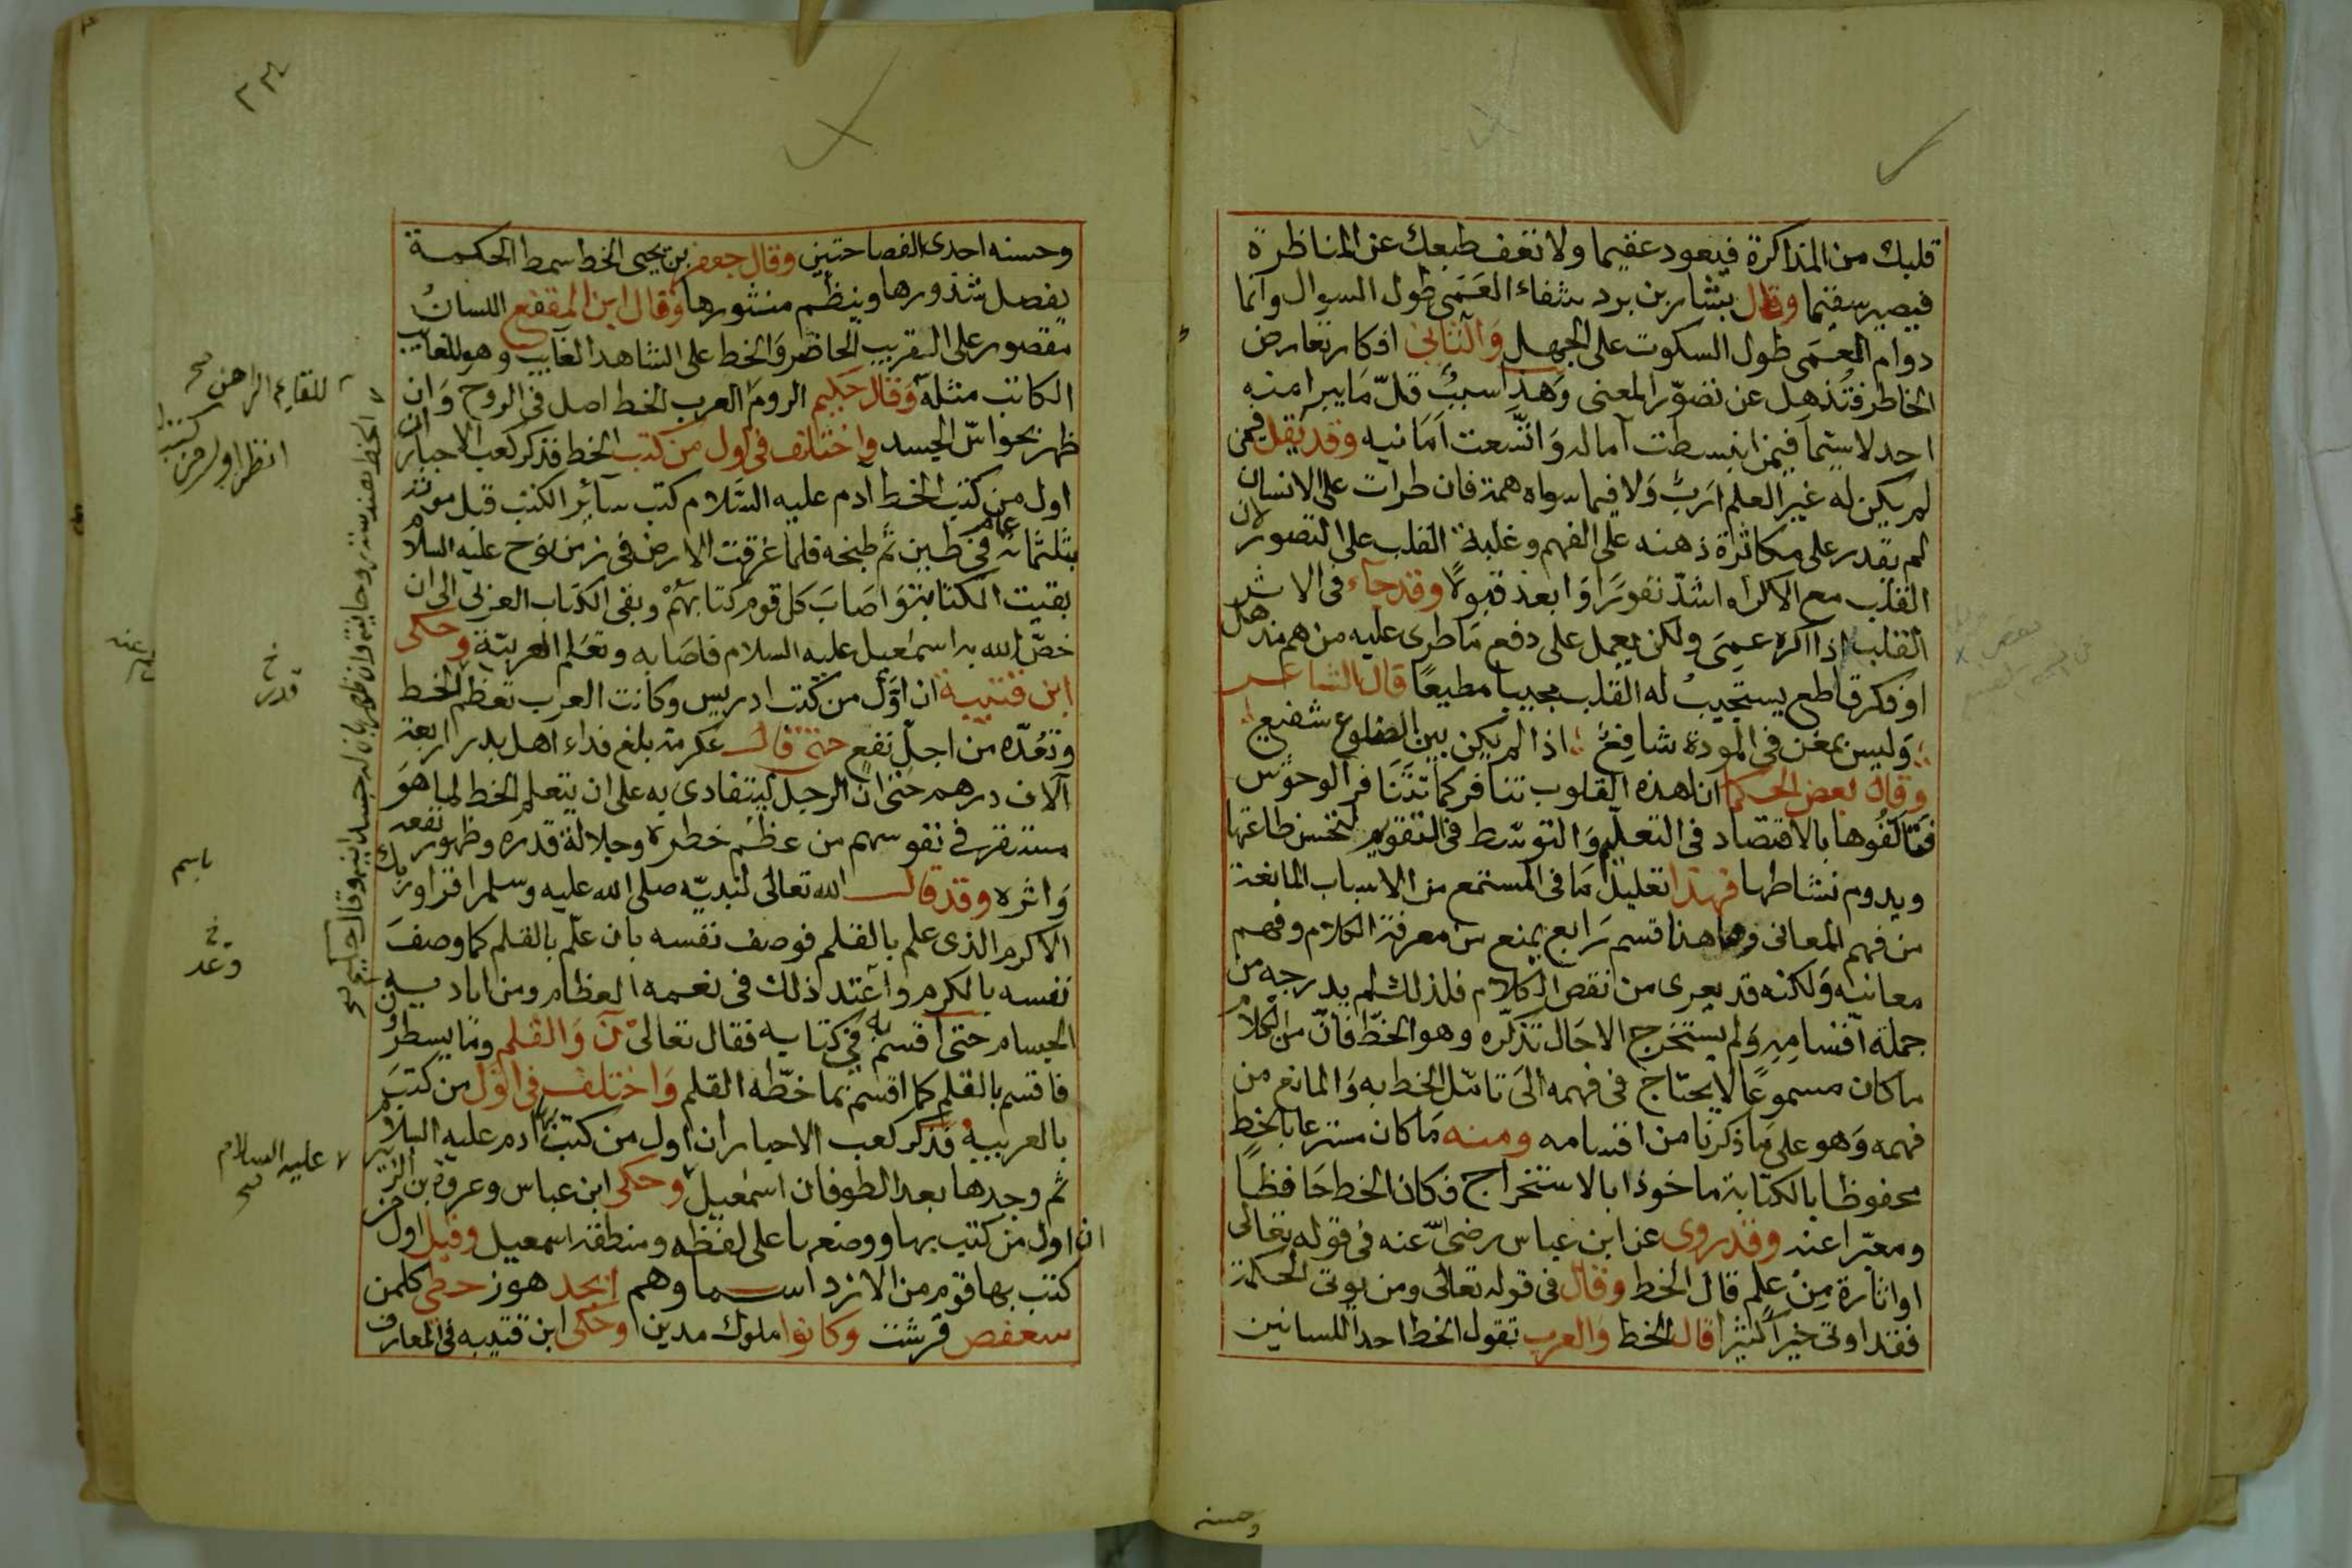 قلبك من المذاكرة فيعود عقيما ولا تعف طبعك عن المناظرة
فيصير سقيما وقال بشار بن برد شفاء العمى طول السوال وانما
دوام العمى طول السكوت على الجهل والثاني افكار تعارض
الخاطر فتذهل عن تصوّر المعنى وهذا سبب قلّ ما يبرا منه
احد لا سيما فيمن انبسطت آماله واتّسعت امانيه وقد يقل فيمن
لم يكن له غير العلم ارب ولا فيما سواه همة فان طرات على الانسان
لم يقدر على مكاثرة ذهنه على الفهم وغلبة القلب على التصور لان
القلب مع الاكراه اشدّ نفورا وابعد قبولا وقد جآء في الاثر
القلب اذا اكره عمى ولكن يعمل على دفع ما طرى عليه من هم مذهل
او فكر قاطع يستجيب له القلب مجيبا مطيعا قال الشاعر
وليس بمغن في المودة شافع اذا لم يكن بين الضلوع شفيع
وقال بعض الحكما ان لهذه القلوب تنافر كما تتنافر الوحوش
فتالفوها بالاقتصاد في التعليم والتوسط في التقويم لتحسن طاعتها
ويدوم نشاطها فهذا تعليل ما في المستمع من الاسباب المانعة
من فهم المعاني وهاهنا قسم رابع يمنع من معرفة الكلام وفهم
معانيه ولكنه قد يعرى من نقص الكلام فلذلك لم يدرجه من
جملة اقسامه ولم يستخرج الاحال تذكره وهو الخط فانّ من الكلام
ما كان مسموعا لا يحتاج في فهمه الى تامّل الخط به والمانع من
فهمه وهو على ما ذكرنا من اقسامه ومنه ما كان مسترعا بالخط
محفوظا بالكتابة ماخوذا بالاستخراج فكان الخط حافظا
ومعبّرا عنه وقد روى عن ابن عباس رضى عنه في قوله تعالى
او اثارة من علم قال الخط وقال في قوله تعالى ومن يوتى الحكمة
فقد اوتى خيرا كثيرا قال الخط والعرب تقول الخط احد اللسانين
وحسنه
وحسنه احدى الفصاحتين وقال جعفر بن يحيى الخط سمط الحكمة
يفصل شذورها وينظم منشورها وقال ابن المقفع اللسان
مقصور على القريب الحاضر والخط على الشاهد الغايب وهو للغايب
الكائن مثله وقال حكيم الروم العرب الخط اصل في الروح وان
ظهر بحواسّ الجسد واختلف في اول من كتب الخط فذكر كعب الاحبار ان
اول من كتب الخط آدم عليه السلام كتب سآئر الكتب قبل موته
بثلثماية عام في طين ثم طبخه فلما غرقت الارض في زمن نوح عليه السلام
بقيت الكتابة واصاب كل قوم كتابهم وبقى الكتاب العربي الى ان
خصّ الله به اسمعيل عليه السلام فاصابه وتعلم العربيّة وحكى
ابن قتيبة ان اوّل من كتب ادريس وكانت العرب تعظم الخط
وتعدّه من اجلّ نفع حتى قال عكرمة بلغ فداء اهل بدر اربعة
آلاف درهم حتى ان الرجل ليتفادى به على ان يتعلم الخط لما هو
مستقر في نفوسهم من عظم خطره وجلالة قدره وظهور نفعه
واثره وقد قال الله تعالى لنبيّه صلى الله عليه وسلم اقرا وربك
الاكرم الذي علم بالقلم فوصف نفسه بان علّم بالقلم كما وصف
نفسه بالكرم واعتد ذلك في نعمه العظام ومن اياديه
الجسام حتى اقسم به في كتابه فقال تعالى ن والقلم وما يسطرون
فاقسم بالقلم كما اقسم بما خطّه القلم واختلف في اوّل من كتب
بالعربيه فذكر كعب الاحبار ان اول من كتب بها ادم عليه السلام
ثم وجدها بعد الطوفان اسمعيل وحكى ابن عباس وعروة بن الزبير
ان اول من كتب بها ووضعها على لفظه ومنطقه اسمعيل وقيل اول من
كتب بها قوم من الازد اسما وهم ابجد هوز حطي كلمن
سعفص قرشت وكانوا ملوك مدين وحكى ابن قتيبه في المعارف
للقايم الراهن صح
انظر اول من كتب
خ
قدر
باسم
خ
وعد
عليه السلام
صح